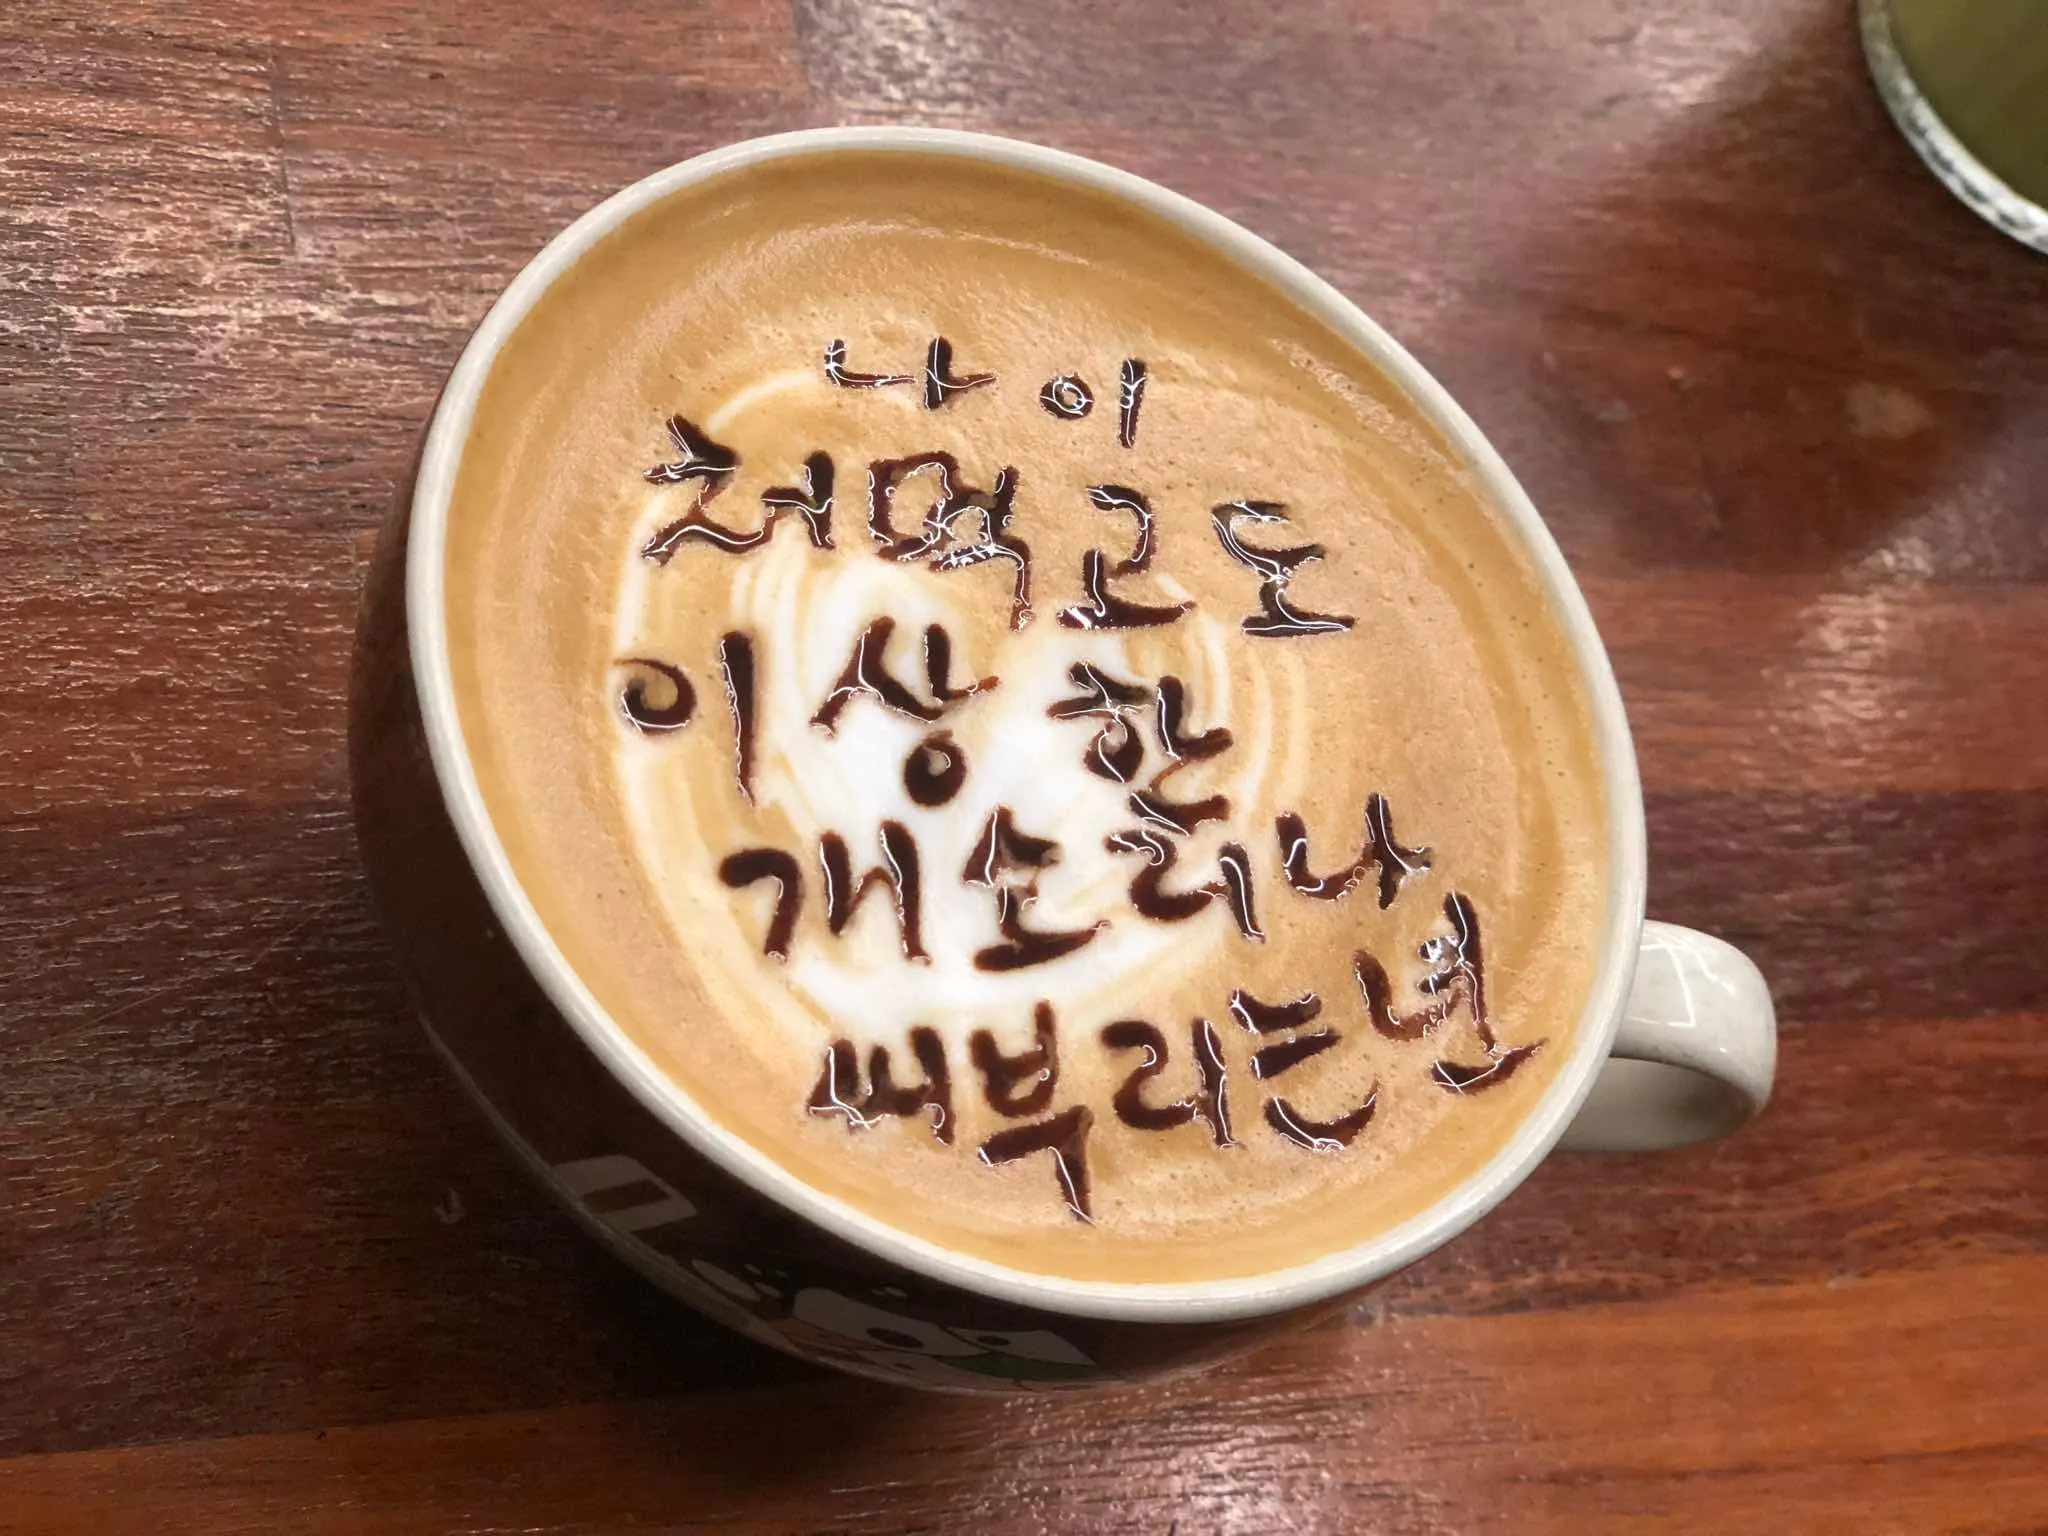 나이
처먹고도
이상한
개소리나
써부리는년